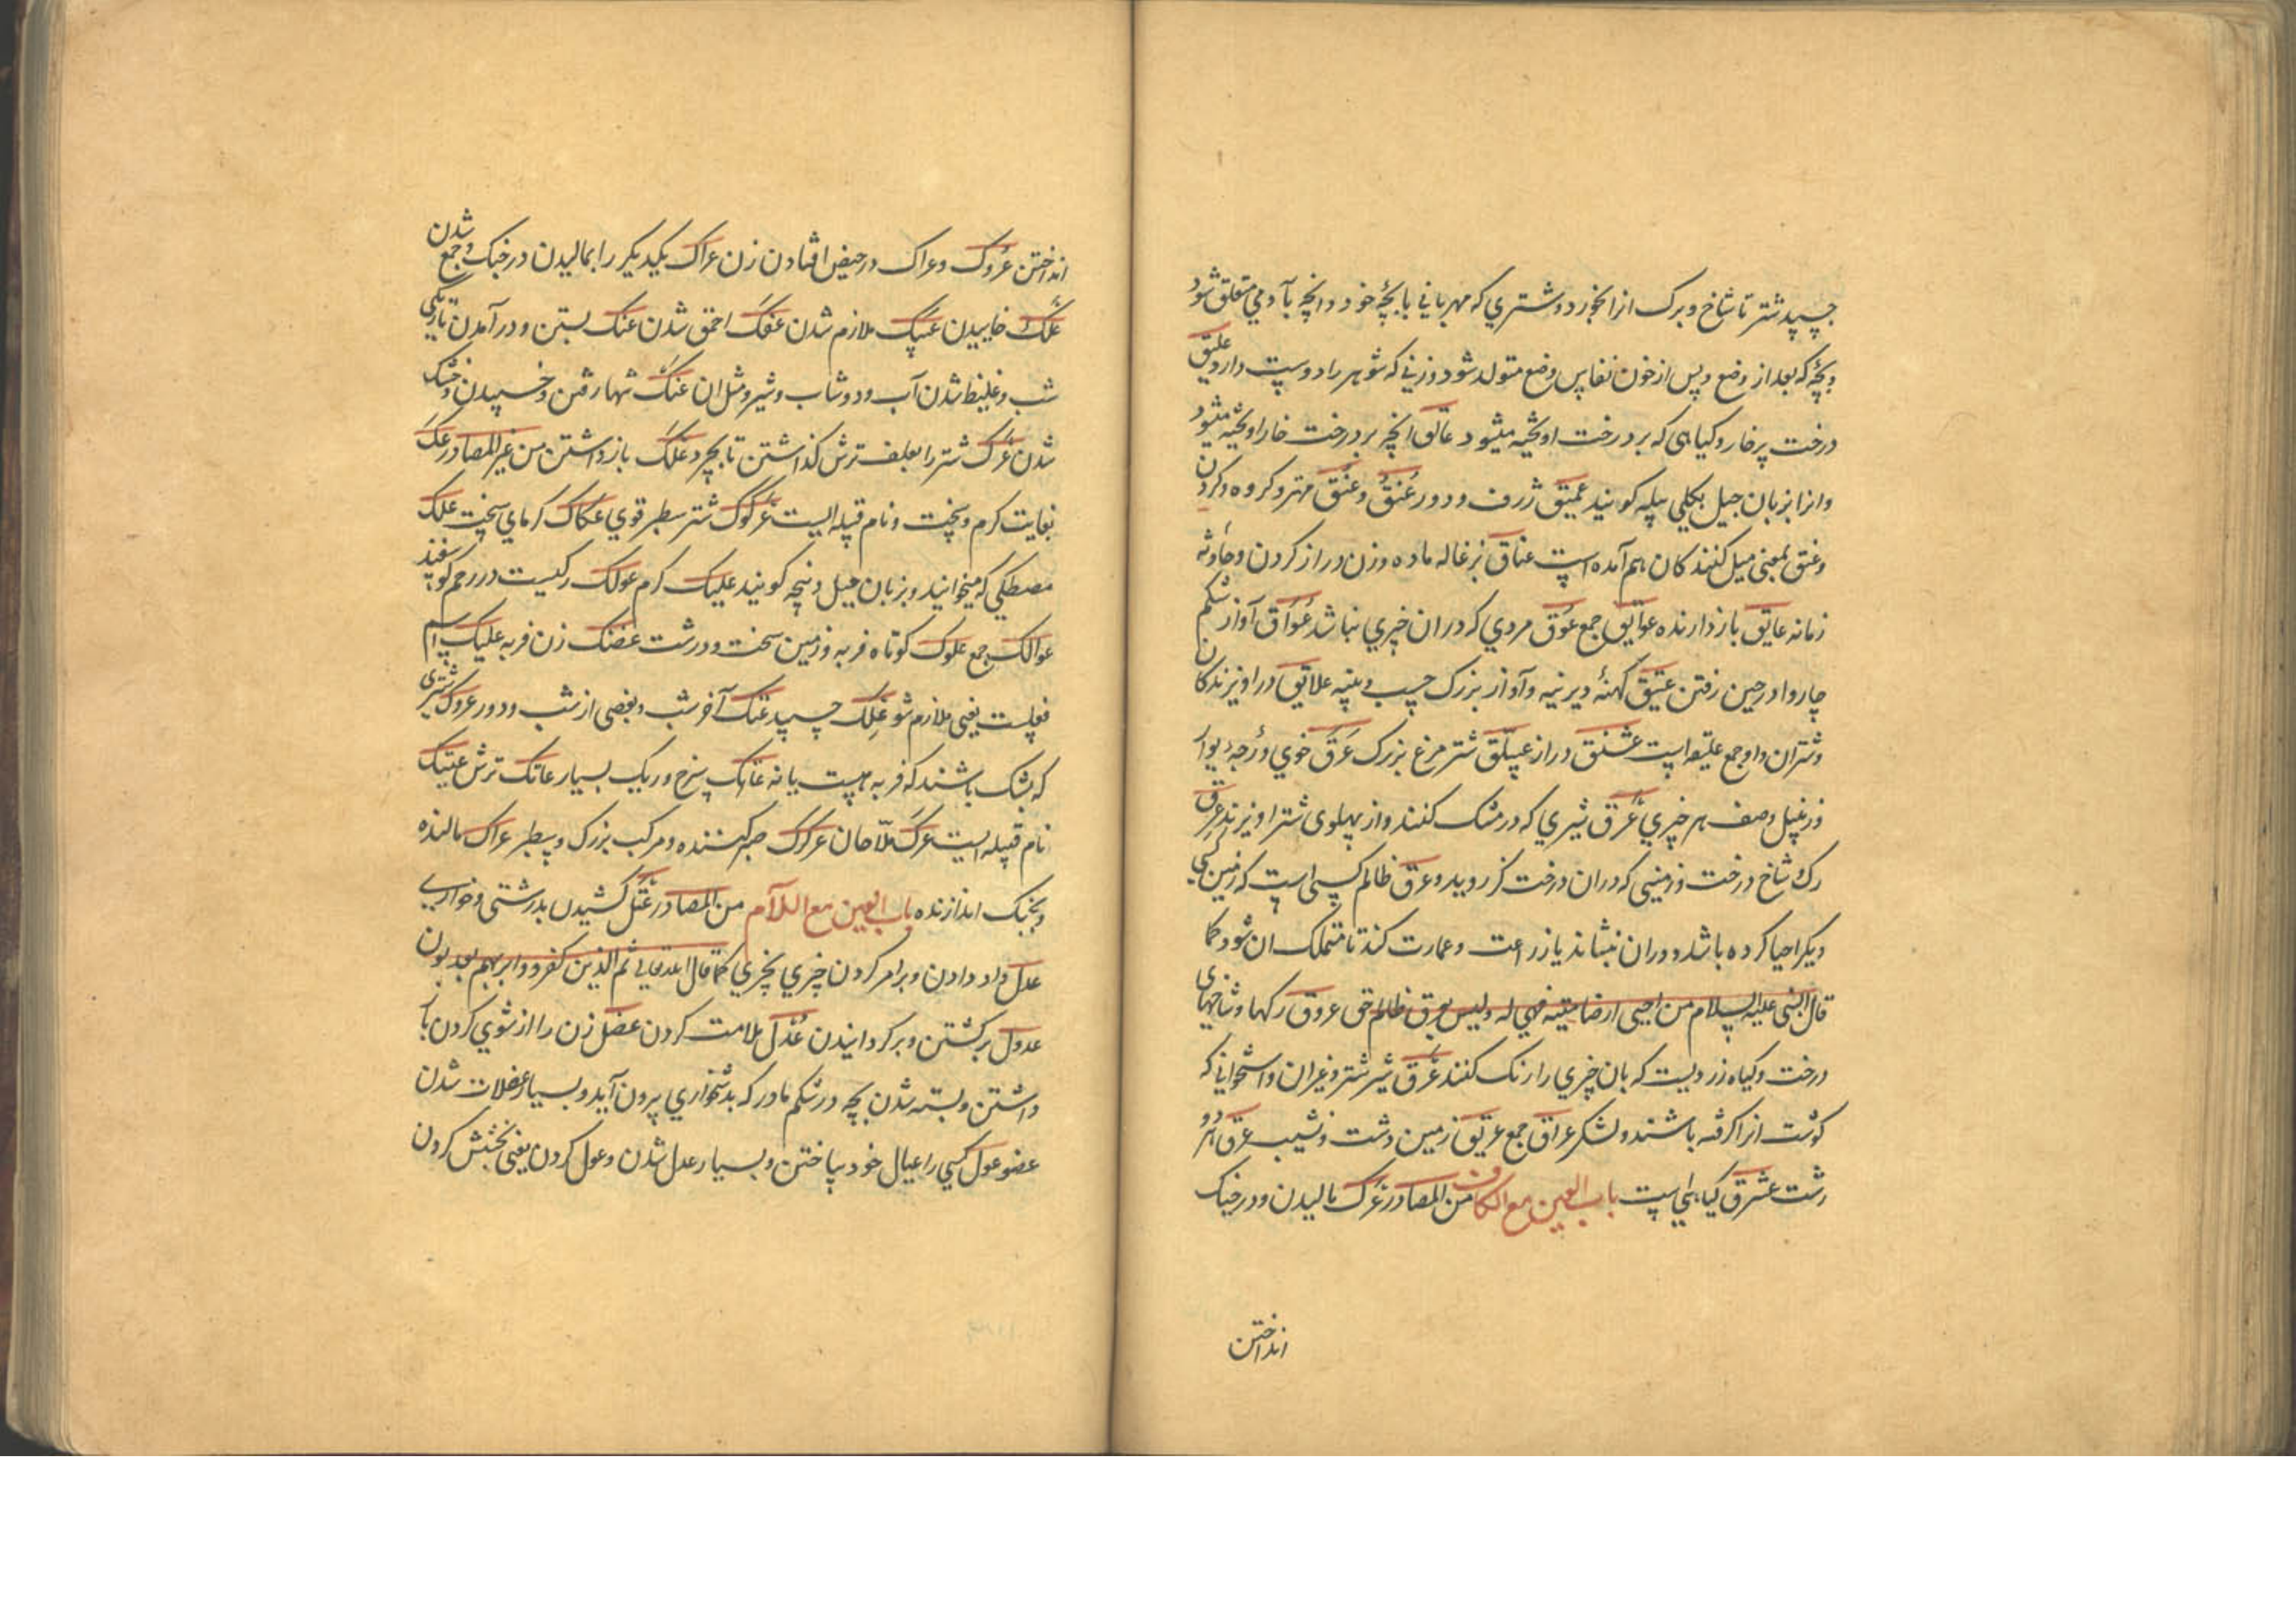 چسپد شتر تا شاخ و برک از انجورد و شتری که مهربانی با بچهٔ خود و انچه بآدمی متعلق شود
و بچهٔ که بعد از وضع و پس از خون نفاس وضع متولد شود و زنی که شوهر را دوست دارد علیق
درخت پرخار و کیاهی که بر درخت اویخته میشود عالق انچه بر درخت خار اویخته میشود
و انرا بزبان جیل بکلی پیله کویند عمیق ژرف و دور عُنُق و عُنْق مهتر و کروه و کردن
و عنق بمعنی میل کنندکان هم آمده است عناق بزغاله ماده و زن دراز کردن و حادثه
زمانه عایق بازدارنده عوایق جمع عوق مردی که دران خیری نباشد عُواق آواز شکم
چاروا در حین رفتن عتیق کهنهٔ دیرینه و آواز بزرک علایق در اویزندکان
و شتران و او جمع علیقه است عشنق دراز عسلق شتر مرغ بزرک عرق خوی و رجهٔ دیوار
و زنبیل وصف هر چیزی عرق شیری که در مشک کنند و از پهلوی شتر اویزند عرق
رک و شاخ درخت و زمینی که دران درخت کز روید و عرق ظالم کسی است که زمین کسی
دیکر احیا کرده باشد و دران بنشاند یا زراعت و عمارت کند تا متملک ان شود کما
قال النبی علیه السلام من احیی ارضا میتة فهی له و لیس بعرق ظالم حق عروق رکها و شاخهای
درخت و کیاه زردیست که بان چیزی را رنک کنند عرق شیر شتر و غیر ان و استخوانی که
کوشت انرا کرفته باشند و لشکر عراق جمع عریق زمین دشت و نشیب عرق هر دو
رشت عشرق کیاهی است باب العین مع الکاف من المصادر عرک مالیدن و در جنک
انداختن
انداختن عروک و عراک در حیض افتادن زن عراک یکدیکر را بمالیدن در جنک و جمع شدن
علک خاییدن عسک ملازم شدن عفک احمق شدن عنک بستن و در آمدن تاریکی
شب و غلیظ شدن آب و دوشاب و شیر و مثل ان عتک تنها رفتن و خسپیدن و خشک
شدن عرک شتر را بعلف ترش کذاشتن تا بچرد عکک بازداشتن من غیر المصادر عک
بغایت کرم و سخت و نام قبیله ایست عرکوک شتر سطبر قوی عکاک کرمای سخت علک
مصطکی که میخوانید و بزبان جیل ونچه کویند علیک کرم عولک رکیست در رحم کوسفند
عوالک جمع علوک کوتاه فربه و زمین سخت و درشت عضنک زن فربه علیک اسم
فعلست یعنی ملازم شو علک چسپید عنک آخر شب و بعضی از شب و دور عروک شتری
که بشک باشند که فربه هست یا نه عانک سرخ و ریک بسیار عاتک ترش عتیک
نام قبیله ایست عرک ملاحان عرکرک صبر کننده و مرکب بزرک و سطبر عراک مالنده
و بجنک اندازنده باب العین مع اللام من المصادر عتل کشیدن بدرشتی و خواری
عدل داد دادن و برابر کردن چیزی بچیزی کما قال الله تعالی ثم الذین کفروا بربهم یعدلون
عدول برکشتن و برکردانیدن عذل ملامت کردن عضل زن را از شوی کردن باز
داشتن و بسته شدن بچه در شکم مادر که بدشخواری بیرون آید و بسیار عضلات شدن
عضو عول کسی را عیال خود ساختن و بسیار عدل شدن و عول کردن یعنی بخشش کردن